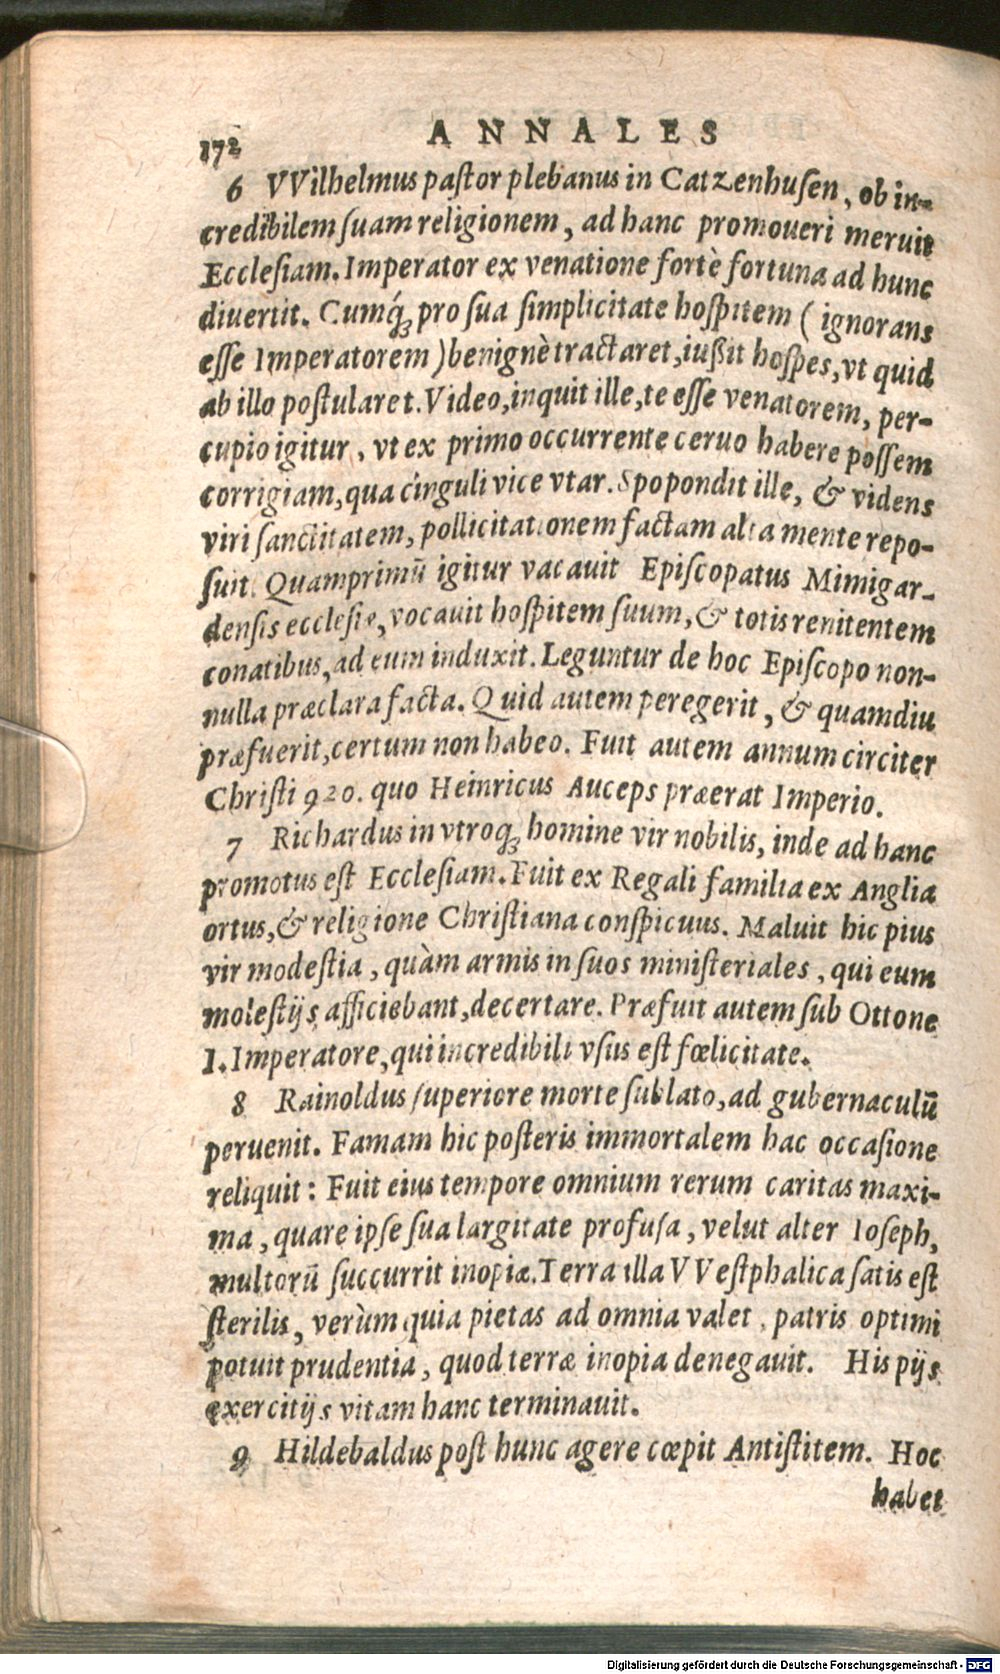 172 ANNALES
6 VVilhelmus paſtor plebanus in Catzenhuſen, ob in-
credibilem ſuam religionem, ad hanc promoueri meruit
Eccleſiam. Imperator ex venatione fortè fortuna ad hunc
diuertit. Cumq́; pro ſua ſimplicitate hoſpitem ( ignorans
eſſe Imperatorem ) benignè tractaret, iußit hoſpes, vt quid
ab illo poſtularet. Video, inquit ille, te eſſe venatorem, per-
cupio igitur, vt ex primo occurrente ceruo habere poſſem
corrigiam, qua cinguli vice vtar. Spopondit ille, & videns
viri ſanctitatem, pollicitationem factam alta mente repo-
ſuit. Quamprimū igitur vacauit Epiſcopatus Mimigar-
denſis eccleſiæ, vocauit hoſpitem ſuum, & totis renitentem
conatibus, ad eum induxit. Leguntur de hoc Epiſcopo non-
nulla præclara facta. Quid autem peregerit, & quamdiu
præfuerit, certum non habeo. Fuit autem annum circiter
Chriſti 920. quo Heinricus Auceps præerat Imperio.
7 Richardus in vtroq; homine vir nobilis, inde ad hanc
promotus eſt Eccleſiam. Fuit ex Regali familia ex Anglia
ortus, & religione Chriſtiana conſpicuus. Maluit hic pius
vir modeſtia, quàm armis in ſuos miniſteriales, qui eum
moleſtijs afficiebant, decertare. Præfuit autem ſub Ottone
I. Imperatore, qui incredibili vſus eſt fœlicitate.
8 Rainoldus ſuperiore morte ſublato, ad gubernaculū
peruenit. Famam hic poſteris immortalem hac occaſione
reliquit: Fuit eius tempore omnium rerum caritas maxi-
ma, quare ipſe ſua largitate profuſa, velut alter Ioſeph,
multorū ſuccurrit inopiæ. Terra illa VVeſtphalica ſatis eſt
ſterilis, verùm quia pietas ad omnia valet, patris optimi
potuit prudentia, quod terræ inopia denegauit. His pijs
exercitijs vitam hanc terminauit.
9 Hildebaldus poſt hunc agere cœpit Antiſtitem. Hoc
habet
Digitalisierung gefördert durch die Deutsche Forschungsgemeinschaft - DFG